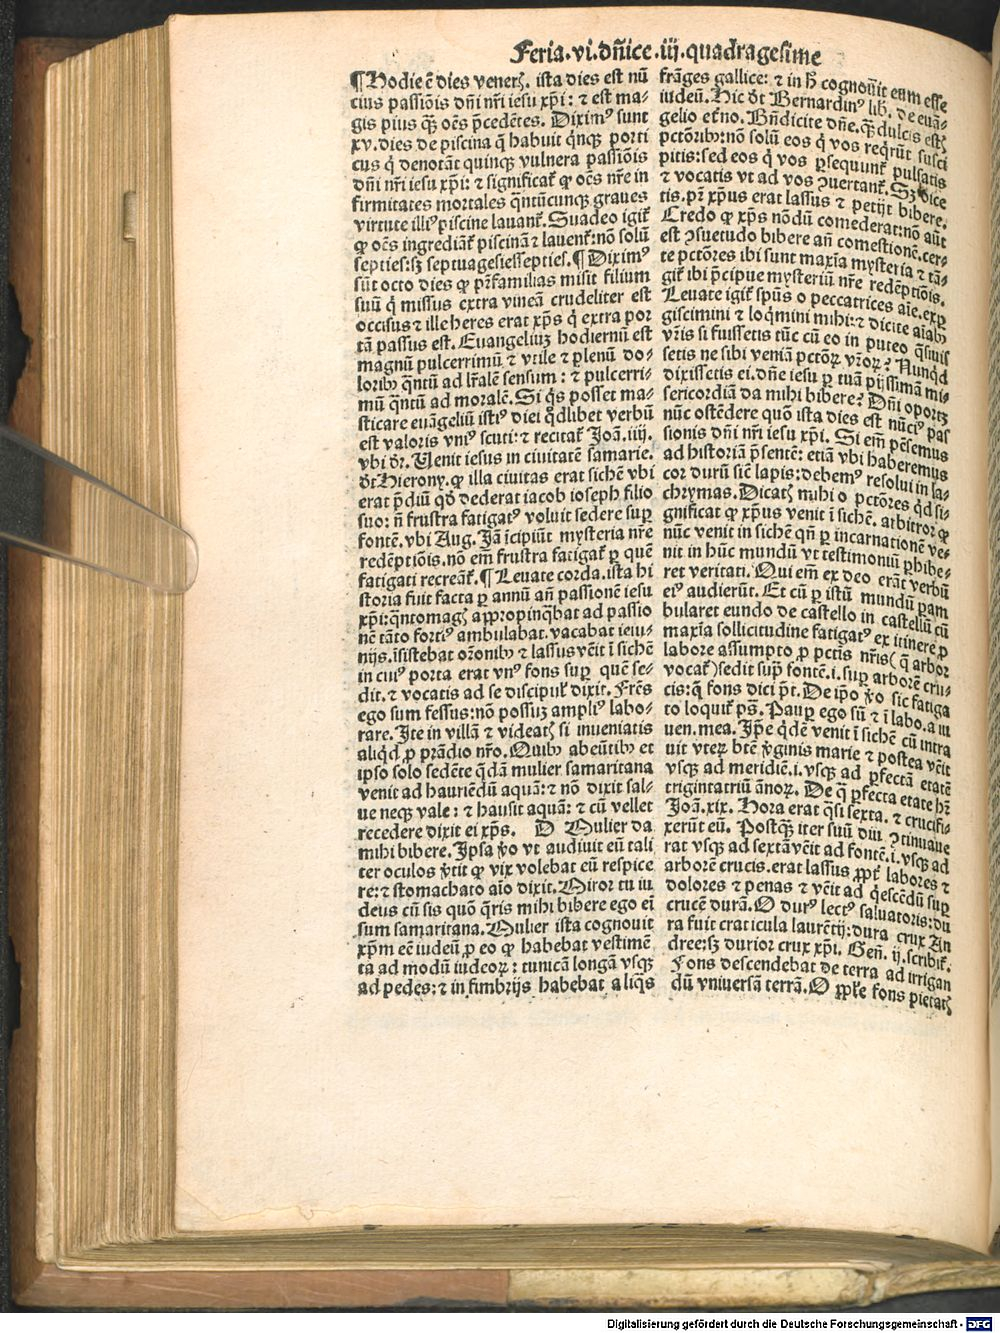 Feria.vi.dñice.iij.quadragesime
¶Hodie ē dies venerꝭ. ista dies est nū
cius passiōis dñi nr̄i iesu xp̄i: ⁊ est ma-
gis pius qꝫ oēs p̄cedētes. Diximꝰ sunt
xv. dies de piscina q̄ habuit q̄nqꝫ porti
cus q̄ denotāt quinqꝫ vulnera passiōis
dñi nr̄i iesu xp̄i: ⁊ significat̄ ꝙ oēs nr̄e in
firmitates mortales q̄ntūcunqꝫ graues
virtute illiꝰ piscine lauant̄. Suadeo igit̄
ꝙ oēs ingrediāt̄ piscinā ⁊ lauent̄: nō solū
septies: sꝫ septuagesiessepties. ¶ Diximꝰ
sūt octo dies ꝙ pr̄familias misit filium
suū q̄ missus extra vineā crudeliter est
occisus ⁊ ille heres erat xp̄s q̄ extra por
tā passus est. Euangeliuꝫ hodiernū est
magnū pulcerrimū ⁊ vtile ⁊ plenū do-
loribꝰ q̄ntū ad lr̄alē sensum: ⁊ pulcerri-
mū q̄ntū ad moralē. Si q̄s posset ma-
sticare euāgeliū istiꝰ diei q̄dlibet verbū
est valoris vniꝰ scuti: ⁊ recitat̄ Joā. iiij.
vbi dr̄. Uenit iesus in ciuitatē samarie.
dt̄ Hierony. ꝙ illa ciuitas erat sichē vbi
erat p̄diū qd̄ dederat iacob ioseph filio
suo: ñ frustra fatigatꝰ voluit sedere suꝑ
fontē. vbi Aug. Jā īcipiūt mysteria nr̄e
redēptiōis. nō em̄ frustra fatigat̄ ꝑ quē
fatigati recreāt̄. ¶ Leuate corda. ista hi
storia fuit facta ꝑ annū añ passionē iesu
xp̄i: q̄ntomagꝭ appropinq̄bat ad passio
nē tāto fortiꝰ ambulabat. vacabat ieiu-
nijs. īsistebat or̄onibꝰ ⁊ lassus vēit ī sichē
in cuiꝰ porta erat vnꝰ fons suꝑ quē se-
dit. ⁊ vocatis ad se discipul̄ dixit. Frēs
ego sum fessus: nō possuꝫ ampliꝰ labo-
rare. Ite in villā ⁊ videatꝭ si inueniatis
aliqd̄ ꝓ prādio nr̄o. Quibꝰ abeūtibꝰ et
ipso solo sedēte q̄dā mulier samaritana
venit ad hauriēdū aquā: ⁊ nō dixit sal-
ue neqꝫ vale: ⁊ hausit aquā: ⁊ cū vellet
recedere dixit ei xp̄s. O Mulier da
mihi bibere. Ipsa ꝟo vt audiuit eū tali
ter oculos ꝟtit ꝙ vix volebat eū respice
re: ⁊ stomachato aīo dixit. Miror tu iu
deus cū sis quō q̄ris mihi bibere ego ei
sum samaritana. Mulier ista cognouit
xp̄m eē iudeū ꝓ eo ꝙ habebat vestimē
ta ad modū iudeoꝝ: tunicā longā vsqꝫ
ad pedes: ⁊ in fimbrijs habebat aliq̄s
frāges gallice: ⁊ in h̄ cognouit eum esse
iudeū. Hic dt̄ Bernardinꝰ lib. de euā-
gelio et̄no. Bn̄dicite dñe. qꝫ dulcis estꝭ
pctōribꝰ: nō solū eos q̄ vos req̄rūt susci
pitis: sed eos q̄ vos ꝑsequunt̄ pulsatis
⁊ vocatis vt ad vos ꝯuertant̄. Sꝫ dice
tis. pr̄ xp̄us erat lassus ⁊ petijt bibere.
Credo ꝙ xp̄s nōdū comederat: nō aūt
est ꝯsuetudo bibere añ comestionē. cer-
te pctōres ibi sunt maxīa mysteria ⁊ tā-
git̄ ibi p̄cipue mysteriū nr̄e redēptiōis.
Leuate igit̄ sp̄us o peccatrices aīe. exꝑ
giscimini ⁊ loq̄mini mihi: ⁊ dicite aīabꝰ
vr̄is si fuissetis tūc cū eo in puteo q̄siuis
setis ne sibi veniā pctōꝝ vr̄oꝝ? Nunqd̄
dixissetis ei. dñe iesu ꝑ tuā pijssimā mi-
sericordiā da mihi bibere? Dñi oportꝫ
nūc ostēdere quō ista dies est nūciꝰ pas
sionis dñi nr̄i iesu xp̄i. Si em̄ pēsemus
ad historiā p̄sentē: etiā vbi haberemus
cor durū sic̄ lapis: debemꝰ resolui in la-
chrymas. Dicatꝭ mihi o pctōres qd̄ si-
gnificat ꝙ xp̄us venit ī sichē. arbitror ꝙ
nūc venit in sichē qn̄ ꝑ incarnationē ve-
nit in hūc mundū vt testimoniū ꝑhibe-
ret veritati. Qui em̄ ex deo erāt verbū
eiꝰ audierūt. Et cū ꝑ istū mundū ꝑam
bularet eundo de castello in castellū cū
maxīa sollicitudine fatigatꝰ ex itinere ꝓ
labore assumpto ꝓ pctīs nr̄is (q̄ arbor
vocat̄) sedit sup̄ fontē. i. suꝑ arborē cru-
cis: q̄ fons dici p̄t. De ip̄o ꝟo sic fatiga
to loquit̄ ps̄. Pauꝑ ego sū ⁊ ī labo. a iu
uen. mea. Ip̄e q̄dē venit ī sichē cū intra
uit vteꝝ btē ꝟginis marie ⁊ postea vēit
vsqꝫ ad meridiē. i. vsqꝫ ad ꝑfectā etatē
trigintatriū ānoꝝ. De q̄ ꝑfecta etate hr̄
Joā. xix. Hora erat q̄si sexta. ⁊ crucifi-
xerūt eū. Postqꝫ iter suū diu ꝯtinuaue
rat vsqꝫ ad sextā vēit ad fontē. i. vsqꝫ ad
arborē crucis. erat lassus ꝓpt̄ labores ⁊
dolores ⁊ penas ⁊ vēit ad q̄escēdū suꝑ
crucē durā. O durꝰ lectꝰ saluatoris: du
ra fuit craticula laurētij: dura crux An
dree: sꝫ durior crux xp̄i. Geñ. ij. scribit̄.
Fons descendebat de terra ad irrigan
dū vniuersā terrā. O ꝓpl̄e fons pietatꝭ
Digitalisierung gefördert durch die Deutsche Forschungsgemeinschaft - DFG